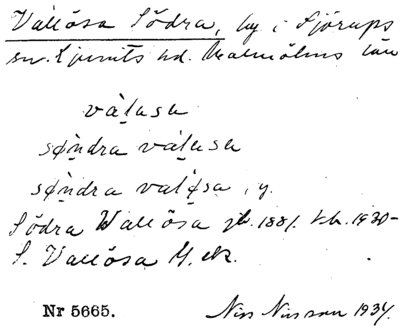 Vallösa Södra, by i Sjörups
sn. Ljunits hd. Malmöhus län
vàḷasa
sø̀ṇdra vàḷasa
sø̀ṇdra valø̣̀sa, y.
Södra Wallösa jb. 1881. kb. 1930-
S. Vallösa G. ek.
Nr 5665. Nils Nilsson 1934.